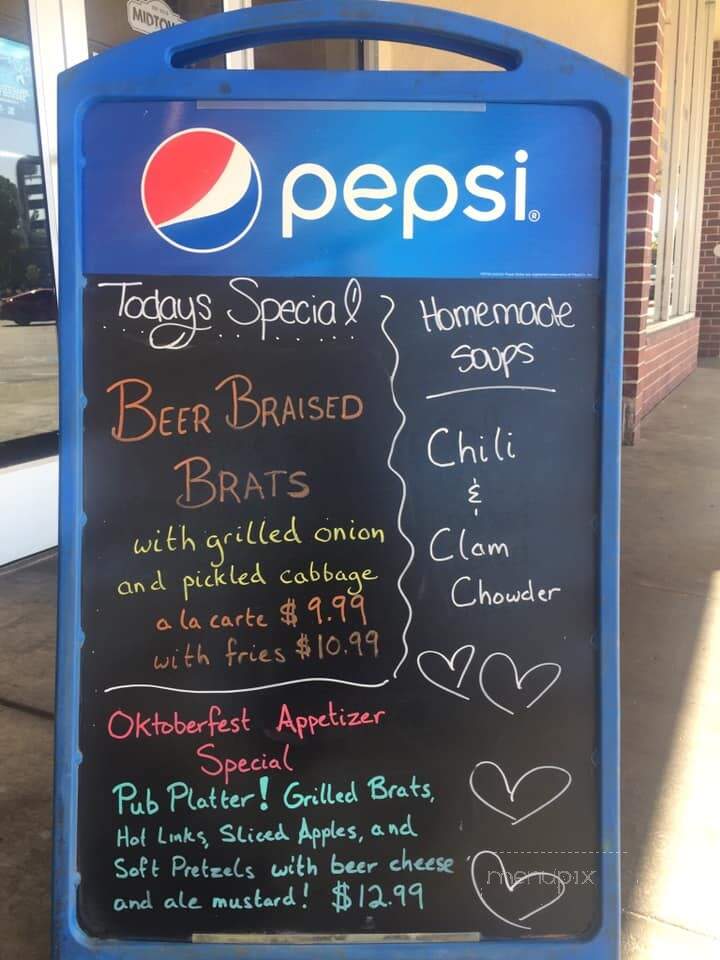 MIDTO
pepsi
Todays Special
BEER BRAISED
BRATS
with grilled onion
and pickled cabbage
a la carte $9.99
with fries $10.99
Homemade
soups
Chili
&
Clam
Chowder
Oktoberfest Appetizer
Special
Pub Platter! Grilled Brats,
Hot Links, Sliced Apples, and
Soft Pretzels with beer cheese
and ale mustard! $12.99
menupix